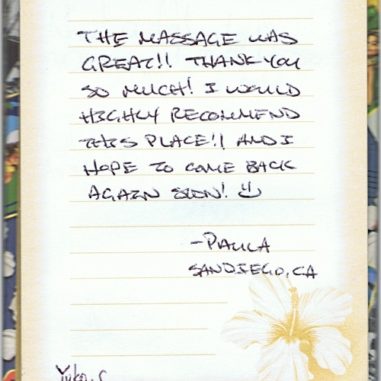 THE MASSAGE WAS
GREAT!! THANK YOU
SO MUCH! I WOULD
HIGHLY RECOMMEND
THIS PLACE!! AND I
HOPE TO COME BACK
AGAIN SOON! 
-PAULA
SAN DIEGO, CA